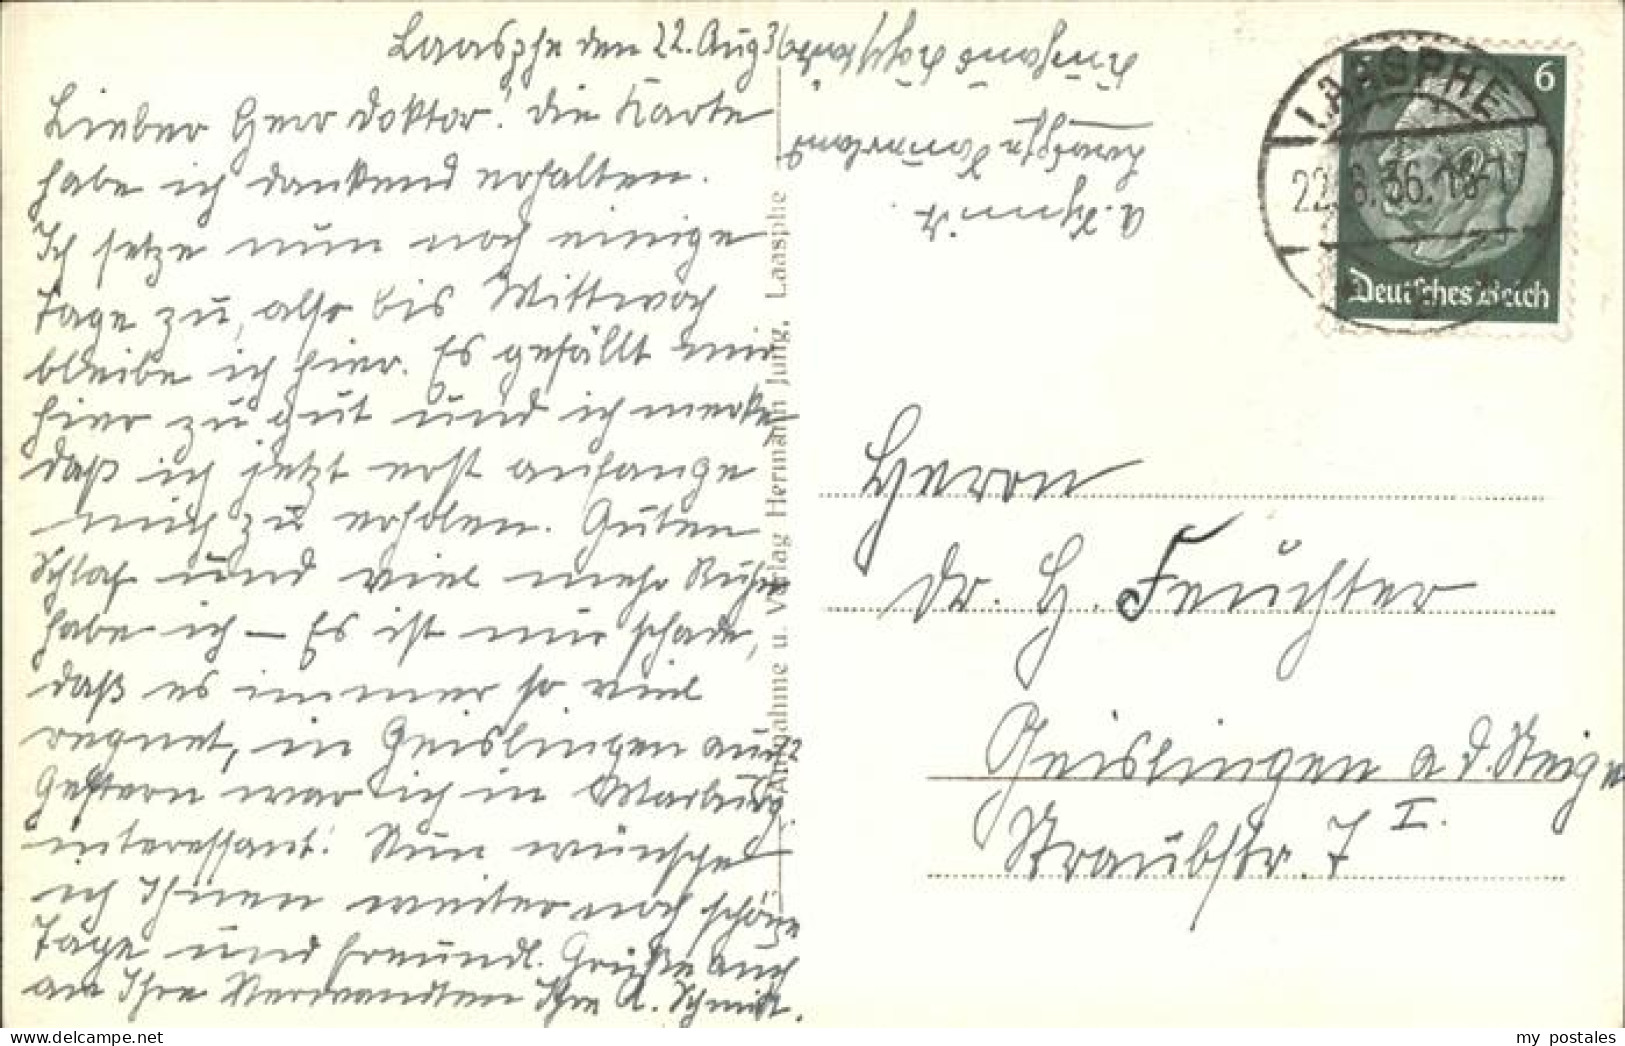 Laasphe den 22. Aug 36
Lieber Herr Doktor! die Karte
habe ich dankend erhalten.
Ich setze nun noch einige
Tage zu, also bis Mittwoch
bleibe ich hier. Es gefällt mir
hier zu gut und ich merke
daß ich jetzt erst anfange
mich zu erholen. Guten
Schlaf und viel mehr Ruhe
habe ich — Es ist nur schade,
daß es immer so viel
regnet, in Geislingen auch?
Gestern war ich in Marburg,
interessant! Nun wünsche
ich Ihnen weiter noch schöne
Tage und freundl. Grüße auch
an Ihre Verwandten Ihre A. Schmidt.
A. Schmidt
Laasphe
Kurhaus
Aufnahme u. Verlag Hermann Jung, Laasphe
LAASPHE
22.8.36.16-17
6
Deutsches Reich
Herrn
Dr. H. Feuchter
Geislingen a d. Steige
Straubstr. 7 I.
my postales